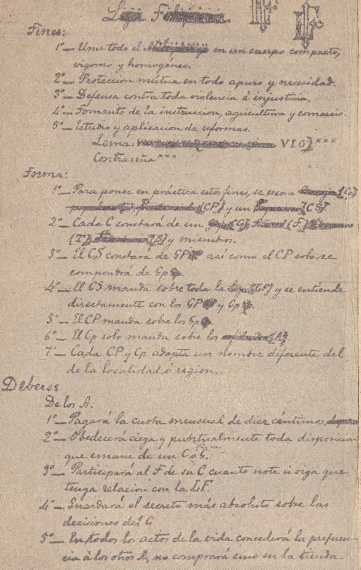 Liga Filipina
Fines:
1º_ Unir todo el en un cuerpo compacto,
vigoroso y homogéneo.
2º_ Protección mutua en todo apuro y necesidad.
3º_ Defensa contra toda violencia é injusticia.
4º_ Fomento de la instrucción, agricultura y comercio.
5º_ Estudio y aplicación de reformas.
Lema
Contraseña * * *
Forma:
1º_ Para poner en práctica estos fines, se crean
(CP) y un (CS)
2º_ Cada C constará de un
y miembros.
3º_ El CS constará de GP así como el CP solo se
compondrá de Gp
4º_ El CS manda sobre toda la y se entiende
directamente con los GP y Gp
5º_ El CP manda sobre los Gp
6º_ El Cp solo manda sobre los
7º_ Cada CP y Cp adopta un nombre diferente del
de la localidad ó región.
Deberes
De los A.
1º_ Pagará la cuota mensual de diez céntimos
2º_ Obedecerá ciega y puntualmente toda disposición
que emane de un C ó G.
3º_ Participará al F de su C cuanto note ú oiga que
tenga relación con la LF.
4º_ Guardará el secreto más absoluto sobre las
decisiones del C
5º_ En todos los actos de la vida concederá la preferen-
cia á los otros A, no comprará sino en la tienda